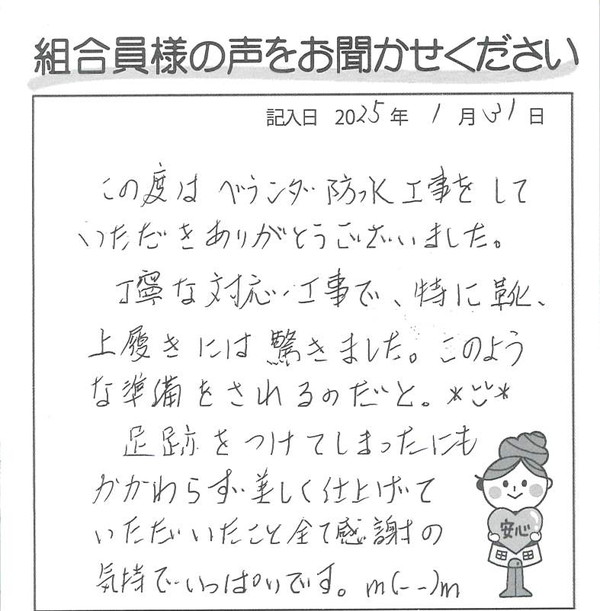 組合員様の声をお聞かせください
記入日 2025年 1月31日
この度は ベランダ防水工事をして
いただきありがとうございました。
丁寧な対応・工事で、特に靴、
上履きには驚きました。このよう
な準備をされるのだと。*ܩ*
足跡をつけてしまったにも
かかわらず美しく仕上げて
いただいたこと全て感謝の
気持でいっぱいです。m(--)m
安心